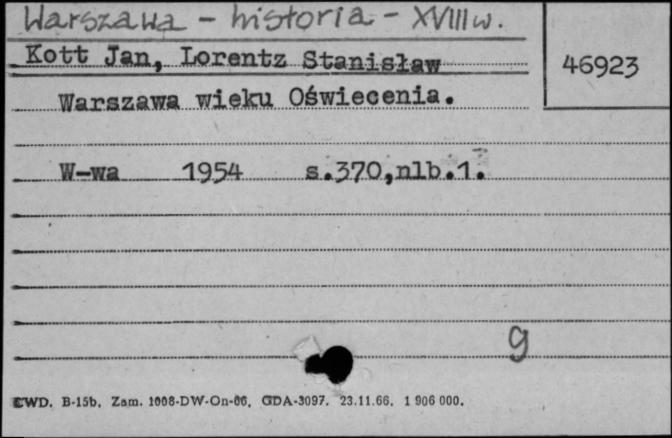 Warszawa - historia - XVIII w.
Kott Jan, Lorentz Stanisław
46923
Warszawa wieku Oświecenia.
W-wa 1954 s.370,nlb.1.
g
CWD. B-15b. Zam. 1008-DW-On-66. GDA-3097. 23.11.66. 1 906 000.